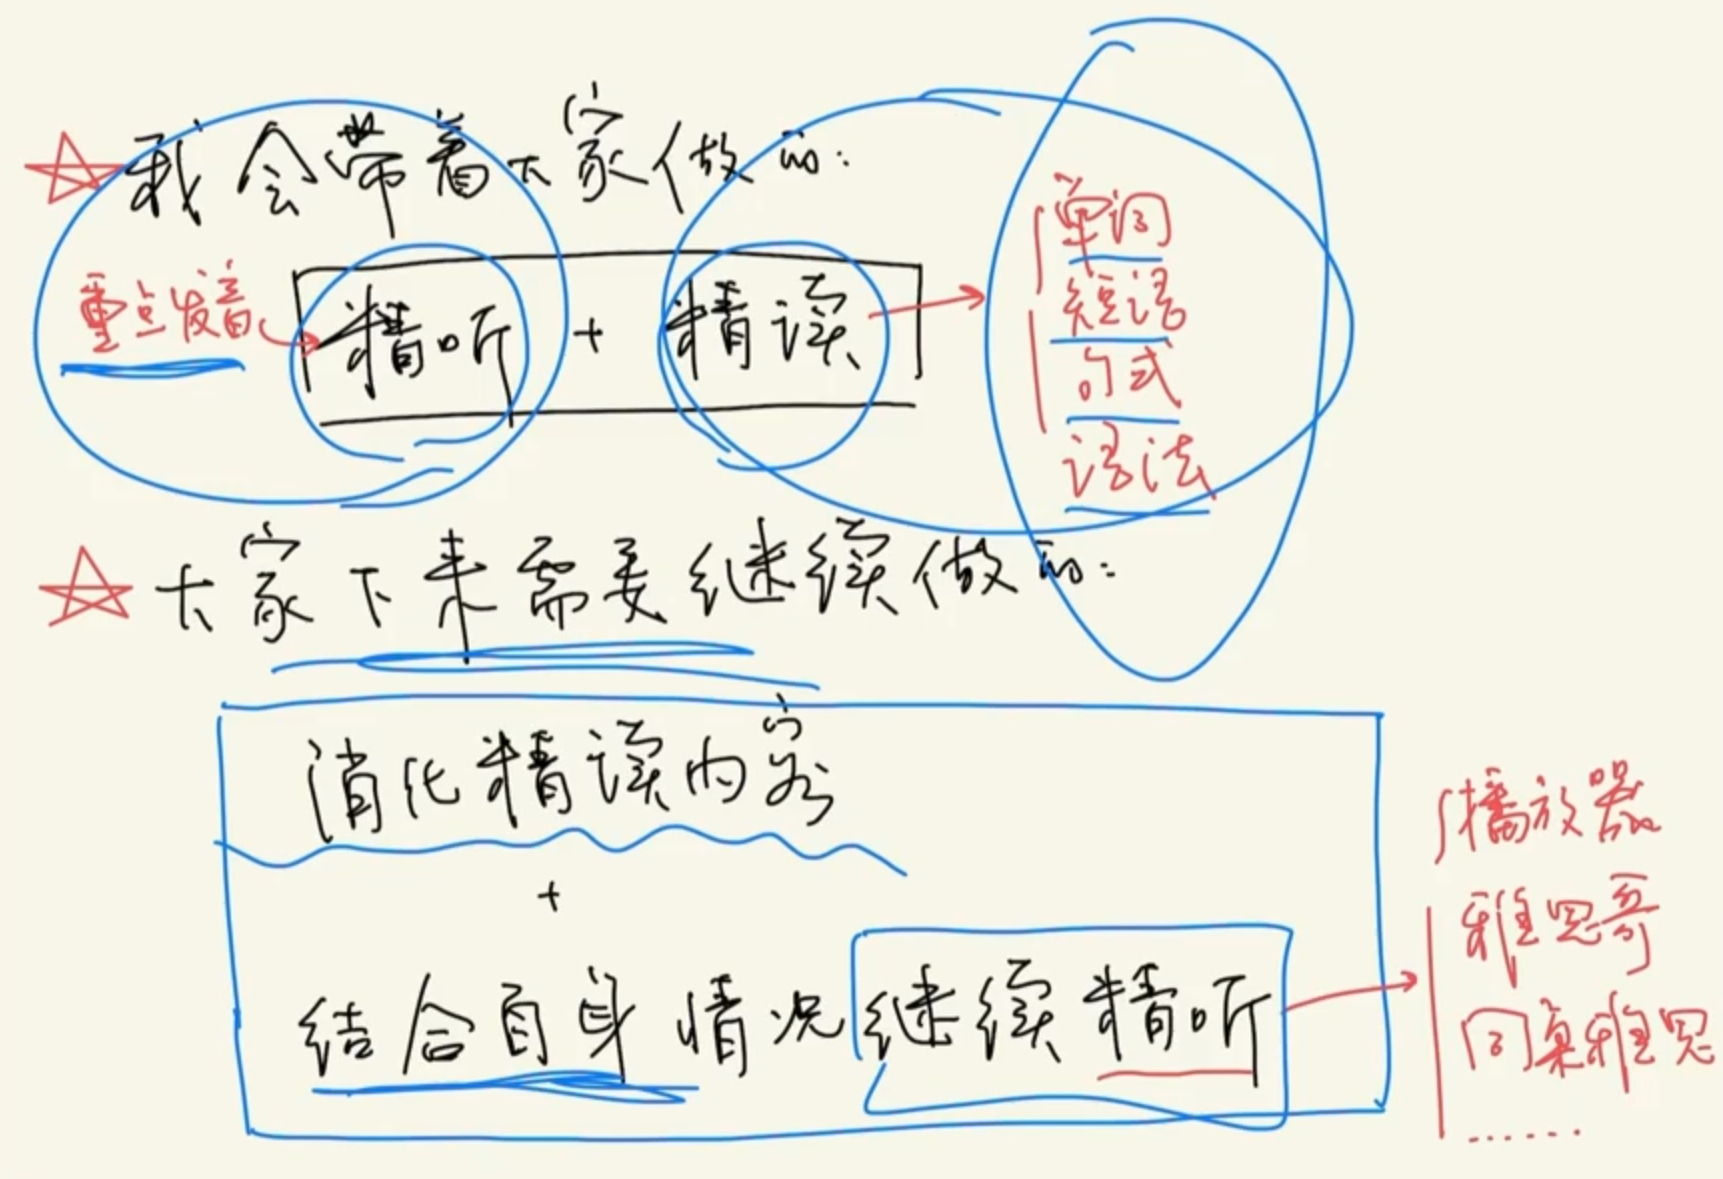 我会带着大家做的：
重点发音
精听 + 精读
单词
短语
句式
语法
大家下来需要继续做的：
消化精读内容
+
结合自身情况继续精听
播放器
雅思哥
同桌雅思
......